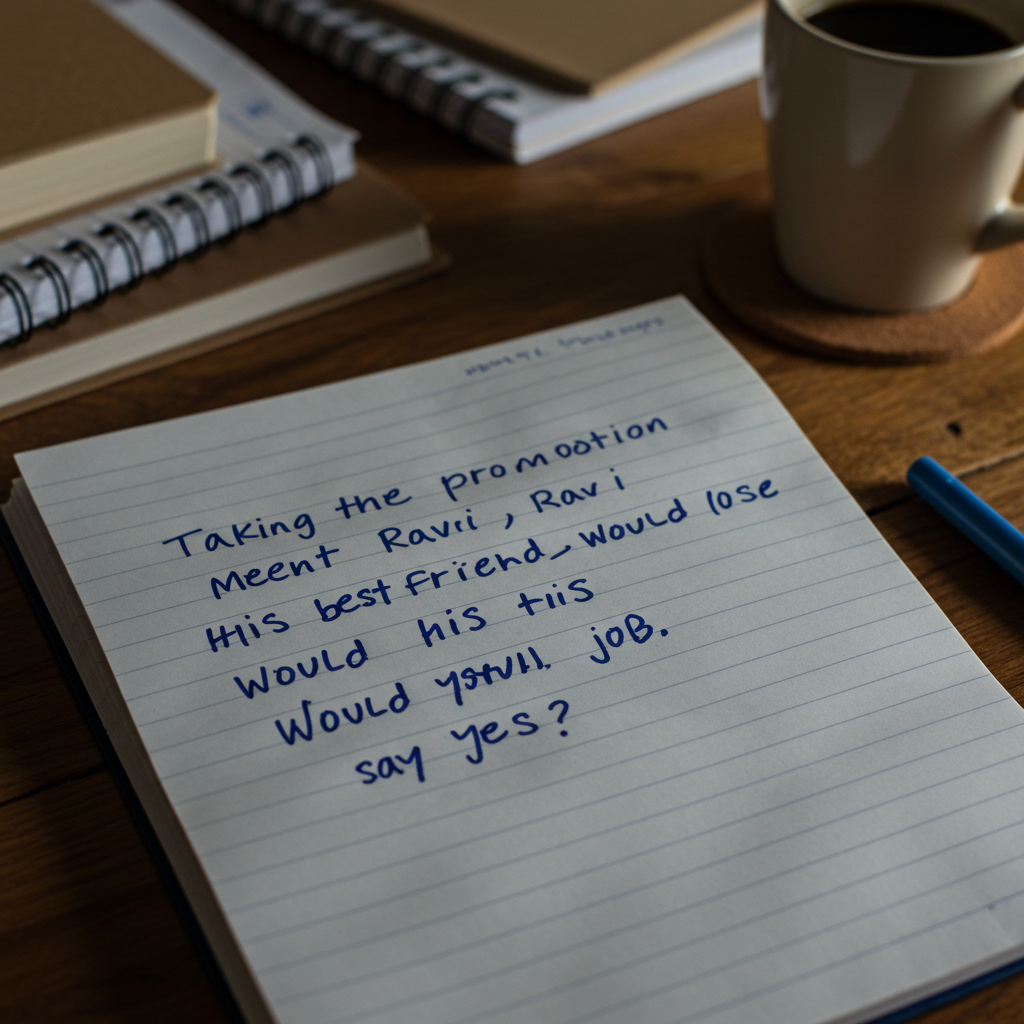 Taking the promootion
Meent Ravii, Ravi
His best friend, would lose
Would his tiis
Would joB.
say yes?